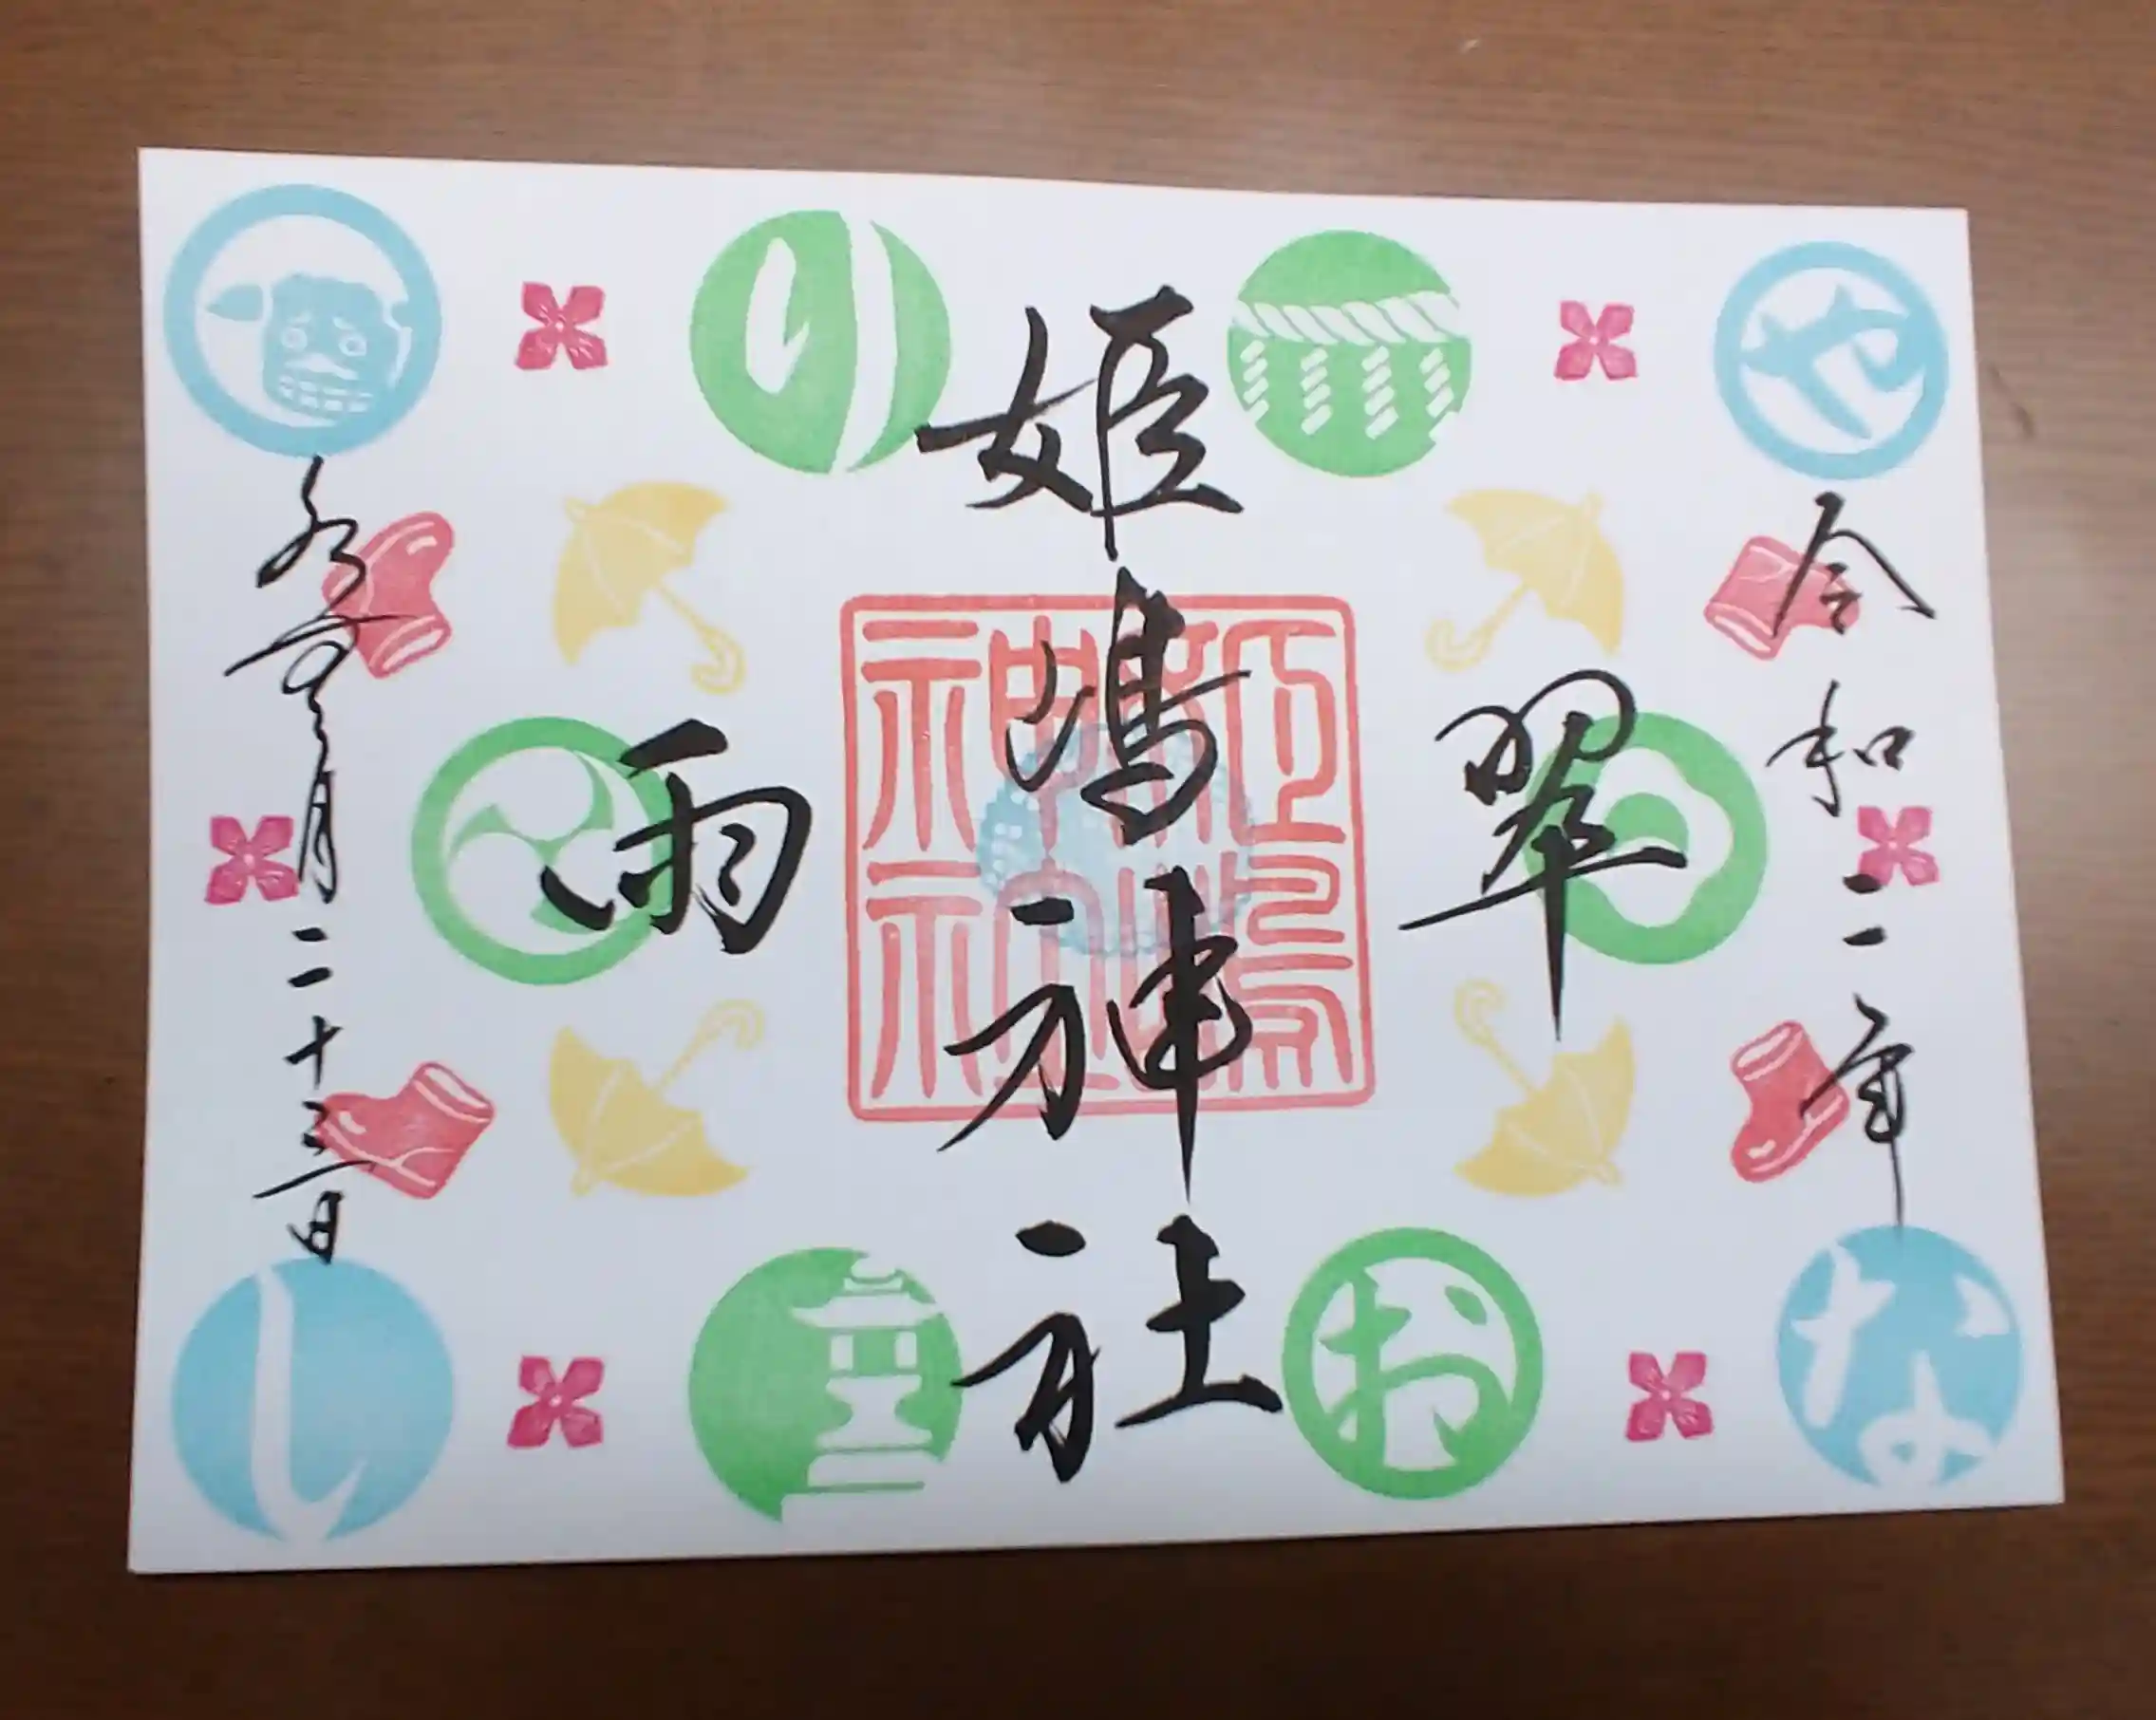 令和二年
翠雨
姫嶋神社
水無月二十三日
姫嶋神社
や
り
な
お
し